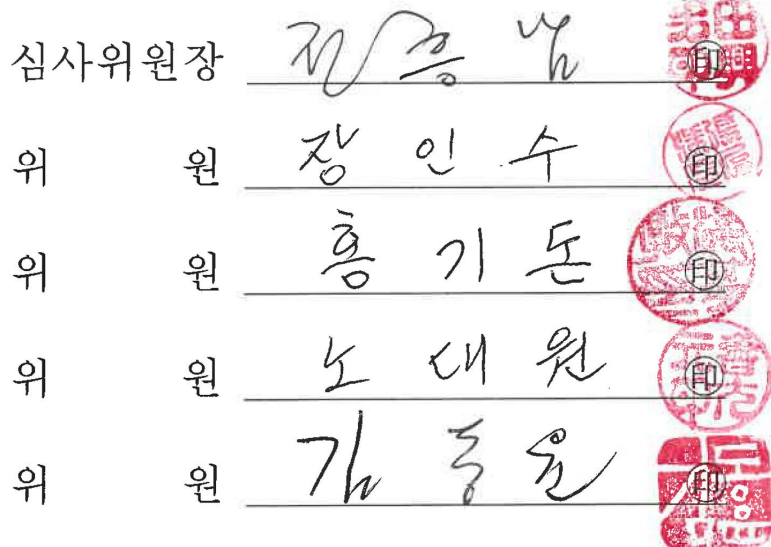 심사위원장 전흥남 印
위 원 장인수 印
위 원 홍기돈 印
위 원 노대원 印
위 원 김동윤 印